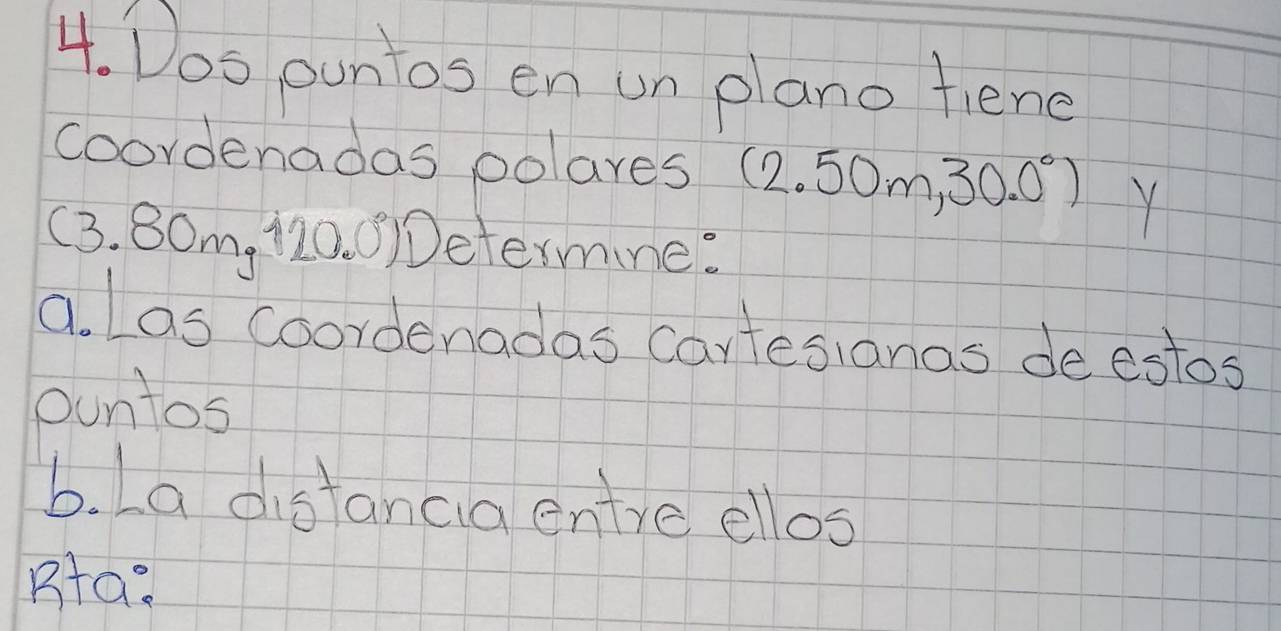 4. Dos puntos en un plano tiene
coordenadas polares (2.50m,30.0°) y
(3.80m, 120.0°) Determine:
a. Las coordenadas cartesianas de estos
puntos
b. La distancia entre ellos
Rta: